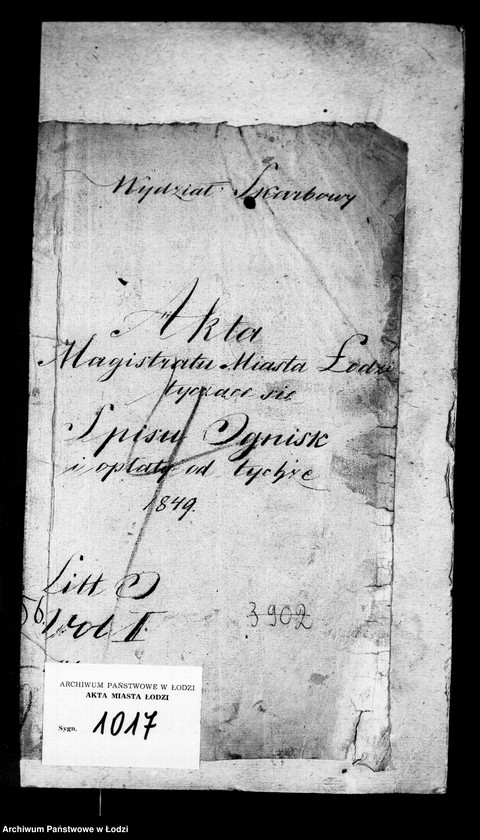 Wydział Skarbowy
Akta
Magistratu Miasta Łodzi
tyczące się
Spisu Ognisk
i opłaty od tychże
1849.
Litt O
Vol II
3902
ARCHIWUM PAŃSTWOWE W ŁODZI
AKTA MIASTA ŁODZI
Sygn. 1017
Archiwum Państwowe w Łodzi